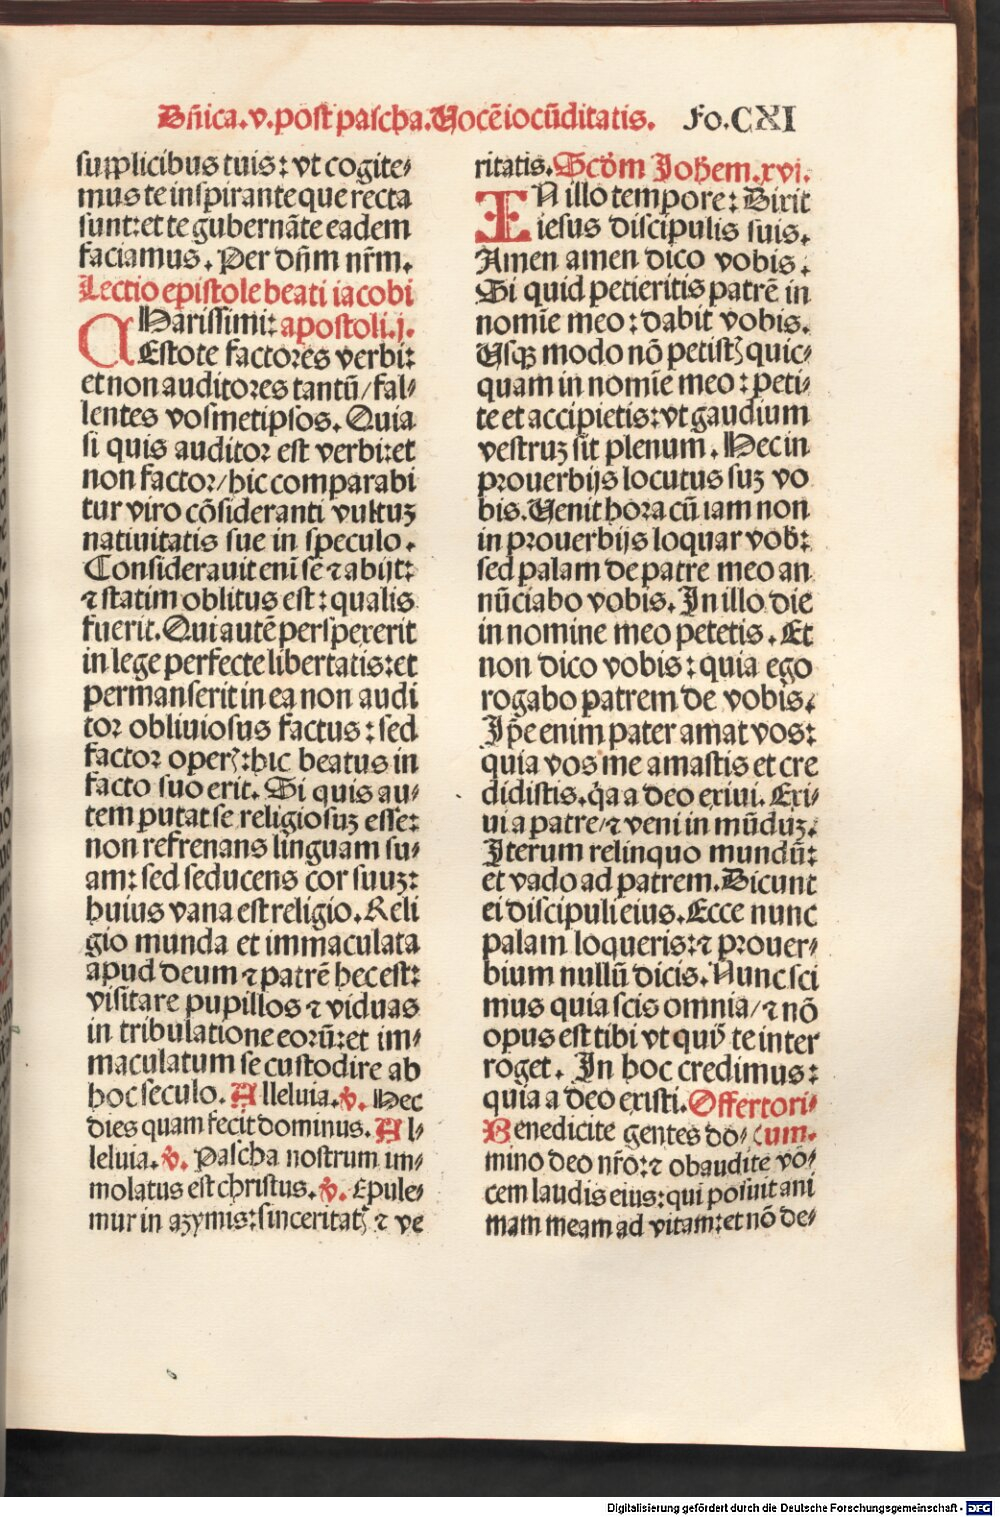 Dñica.v.post pascha.Uocē iocūditatis. Fo.CXI
supplicibus tuis: vt cogite⸗
mus te inspirante que recta
sunt: et te gubernāte eadem
faciamus. Per dñm nr̄m.
Lectio epistole beati iacobi
CHarissimi: apostoli.j.
Estote factores verbi:
et non auditores tantū/fal⸗
lentes vosmetipsos. Quia
si quis auditor est verbi: et
non factor/hic comparabi
tur viro cōsideranti vultuꝫ
natiuitatis sue in speculo.
Considerauit eni̅ se ⁊ abijt:
⁊ statim oblitus est: qualis
fuerit. Qui autē perspexerit
in lege perfecte libertatis: et
permanserit in ea non audi
tor obliuiosus factus: sed
factor operꝭ: hic beatus in
facto suo erit. Si quis au⸗
tem putat se religiosuꝫ esse:
non refrenans linguam su⸗
am: sed seducens cor suuꝫ:
huius vana est religio. Reli
gio munda et immaculata
apud deum ⁊ patrē hec est:
visitare pupillos ⁊ viduas
in tribulatione eorū: et im⸗
maculatum se custodire ab
hoc seculo. Alleluia. ℣. Hec
dies quam fecit dominus. Al⸗
leluia. ℣. Pascha nostrum im⸗
molatus est christus. ℣. Epule⸗
mur in azymis: sinceritatꝭ ⁊ ve
ritatis. Scd̄m Joh̄em.xvi.
IN illo tempore: Dixit
iesus discipulis suis.
Amen amen dico vobis.
Si quid petieritis patrē in
nomīe meo: dabit vobis.
Usqꝫ modo nō petistꝭ quic⸗
quam in nomīe meo: peti⸗
te et accipietis: vt gaudium
vestruꝫ sit plenum. Hec in
prouerbijs locutus suꝫ vo
bis. Uenit hora cū iam non
in prouerbijs loquar vob̄:
sed palam de patre meo an
nūciabo vobis. In illo die
in nomine meo petetis. Et
non dico vobis: quia ego
rogabo patrem de vobis.
Ip̄e enim pater amat vos:
quia vos me amastis et cre
didistis. q̄a a deo exiui. Exi⸗
ui a patre/⁊ veni in mūduꝫ.
Iterum relinquo mundū:
et vado ad patrem. Dicunt
ei discipuli eius. Ecce nunc
palam loqueris: ⁊ prouer⸗
bium nullū dicis. Nunc sci
mus quia scis omnia/⁊ nō
opus est tibi vt quis te inter
roget. In hoc credimus:
quia a deo existi. Offertori⸗
Benedicite gentes do⸗ (um.
mino deo nr̄o: ⁊ obaudite vō⸗
cem laudis eius: qui posuit ani
mam meam ad vitam: et nō de⸗
Digitalisierung gefördert durch die Deutsche Forschungsgemeinschaft - DFG